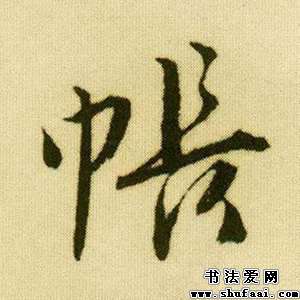 帳
书法爱网
www.shufaai.com